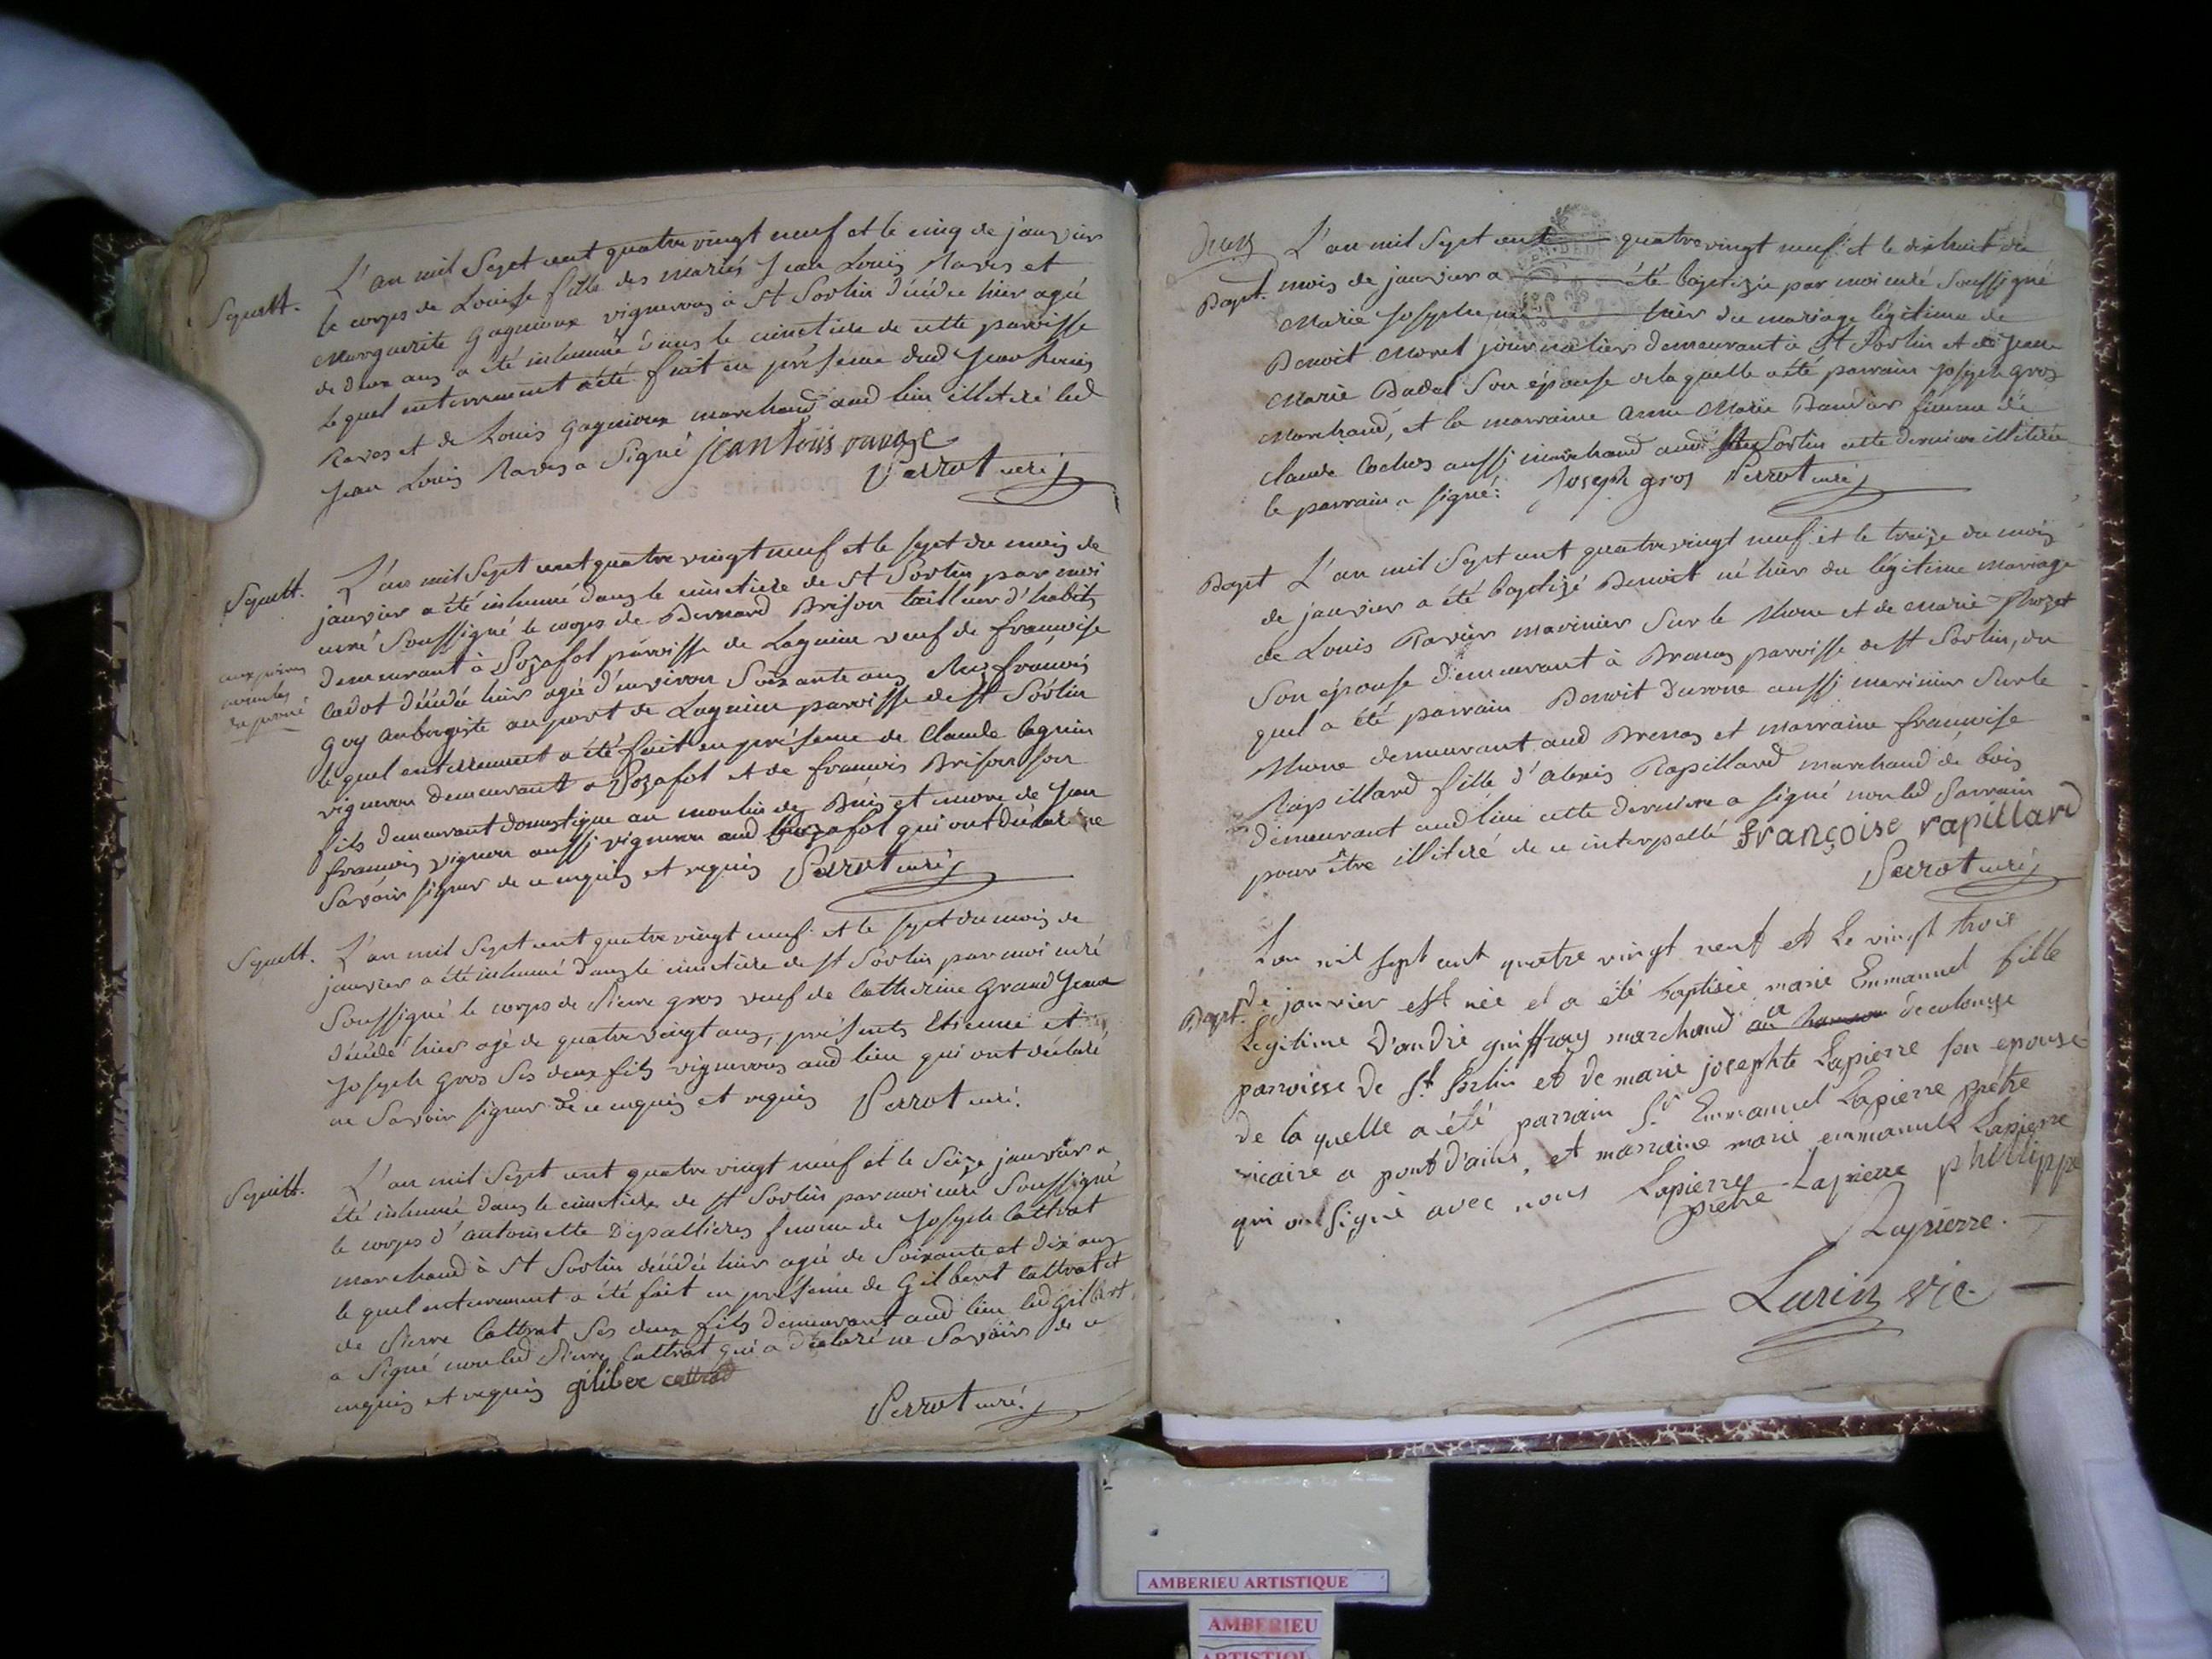 Sepult. L'an mil Sept cent quatre vingt neuf et le cinq de janvier
le corps de Louise fille des mariés Jean Louis Raves et
Marguerite Gagnieux vignerons à St Sorlin décédée hier agée
de deux ans a été inhumé dans le cimetiere de cette paroisse
lequel enterrement a été fait en présence dud Jean Louis
Raves et de Louis Gagnieux marchand aud lieu illetéré led
Jean Louis Raves a Signé jean louis
Perrot curé
Sepult. L'an mil Sept cent quatre vingt neuf et le sept du mois de
janvier a été inhumé dans le cimetiere de St Sorlin par moi
curé Soussigné le corps de Bernard Brison tailleur d'habits
demeurant à Pozafol paroisse de Lagnieu veuf de francoise
Cadot décédé hier agé d'environ Soixante ans chez francois
Goy aubergiste au port de Lagnieu paroisse de St Sorlin
lequel enterrement a été fait en présence de Claude
vigneron demeurant a Pozafol et de francois Brison son
fils demeurant domestique au moulin de Buis et encore de Jean
francois vignon aussi vigneron aud Pozafol qui ont déclaré ne
Savoir signer de ce enquis et requis Perrot curé
Sepult. L'an mil Sept cent quatre vingt neuf et le sept du mois de
janvier a été inhumé dans le cimetiere de St Sorlin par moi curé
Soussigné le corps de Pierre gros veuf de Catherine Grand Jean
décédé hier agé de quatre vingt ans, présents Etienne et
Joseph Gros ses deux fils vignerons aud lieu qui ont déclaré
ne Savoir signer de ce enquis et requis Perrot curé.
Sepult. L'an mil Sept cent quatre vingt neuf et le Seize janvier a
été inhumé dans le cimetiere de St Sorlin par moi curé Soussigné
le corps d'antoinette Depallieres femme de Joseph Cattrat
marchand à St Sorlin décédée hier agée de Soixante et dix ans
le quel enterrement a été fait en présence de Gilbert Cattrat et
de Pierre Cattrat Ses deux fils demeurant aud lieu led Gilbert
a Signé non led Pierre Cattrat qui a déclaré ne Savoir de ce
enquis et requis giliber
Perrot curé.
L'an mil Sept cent quatre vingt neuf et le dixhuit du
Bapt. mois de janvier a été baptizée par moi curé Soussigné
Marie Josephe née hier du mariage légitime de
Benoit Morel journalier demeurant à St Sorlin et de Jeane
Marie Badel Son épouse de la quelle a été parrain joseph gros
Marchand, et la marraine Anne Marie femme de
Claude Cochet aussi marchand aud St Sorlin cette derniere illiterée
le parrain a signé: Joseph gros Perrot curé
Bapt L'an mil Sept cent quatre vingt neuf et le treize du mois
de janvier a été baptizé Benoit né hier du légitime mariage
de Louis Ravier marinier Sur le Rhone et de Marie
Son épouse demeurant à Brenas paroisse de St Sorlin, du
quel a été parrain Benoit aussi marinier Sur le
Rhone demeurant aud Brenas et marraine francoise
Rapillard fille d'Alexis Rapillard marchand de bois
demeurant aud lieu cette derniere a signé non led Parrain
pour être illiteré de ce interpellé françoise rapillard
Perrot curé
L'an mil Sept cent quatre vingt neuf et le vingt trois
Bapt. de janvier est née et a été baptisée marie Emmanuel fille
Legitime D'andré guiffray marchand de coulange
parroisse De St Sorlin et De marie josephte Lapierre son epouse
de la quelle a été parrain Sr Emmanuel Lapierre prêtre
vicaire a pont d'ains, et marraine marie emmanuelle Lapierre
qui ont signé avec nous Lapierre Lapierre philippe
prêtre Lapierre.
Larin vic.
AMBERIEU ARTISTIQUE
AMBERIEU
ARTISTIQUE